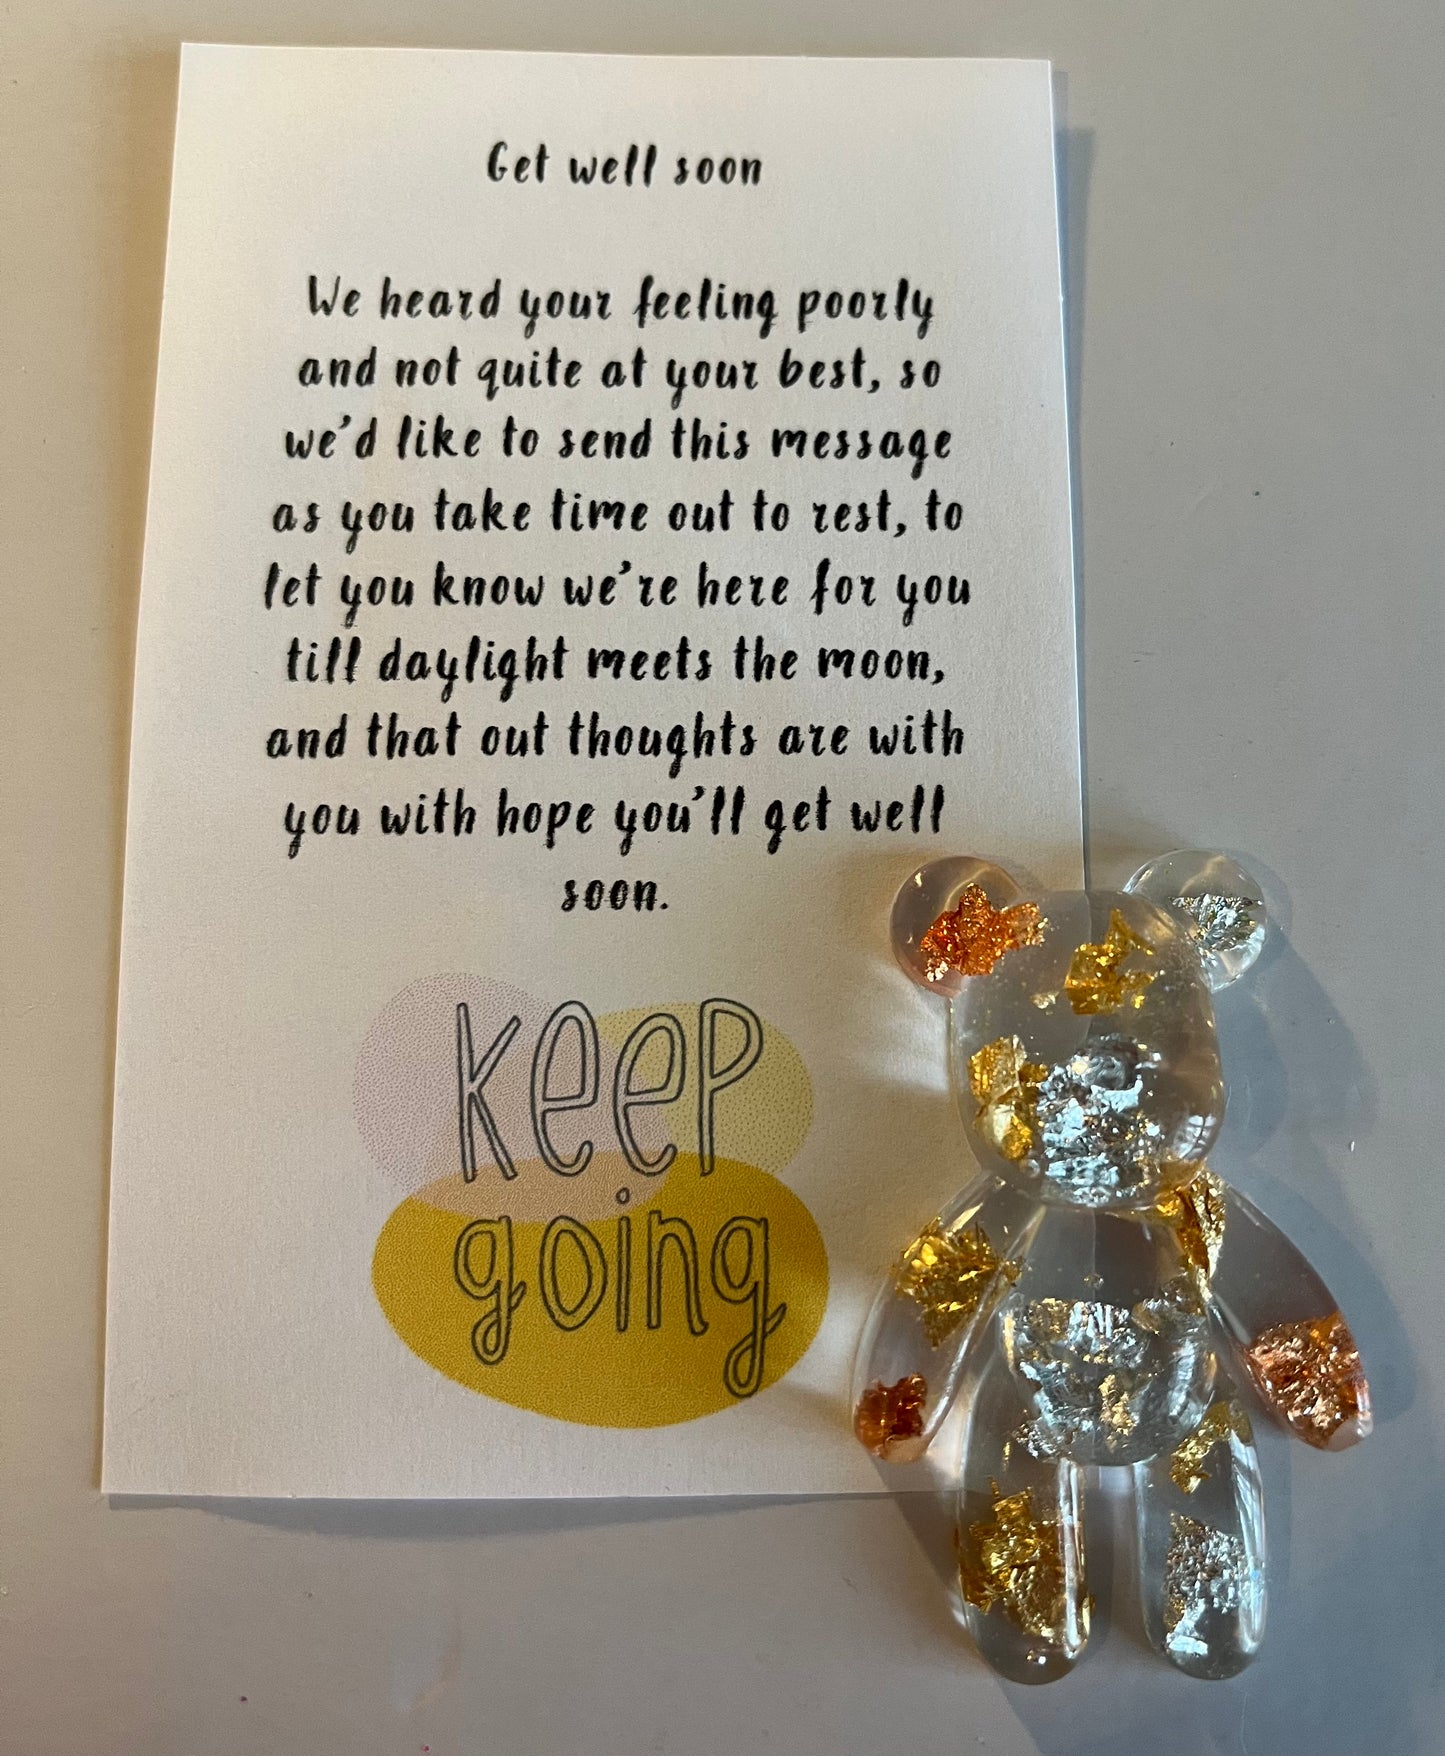 Get well soon
We heard your feeling poorly
and not quite at your best, so
we'd like to send this message
as you take time out to rest, to
let you know we're here for you
till daylight meets the moon,
and that out thoughts are with
you with hope you'll get well
soon.
keep
going